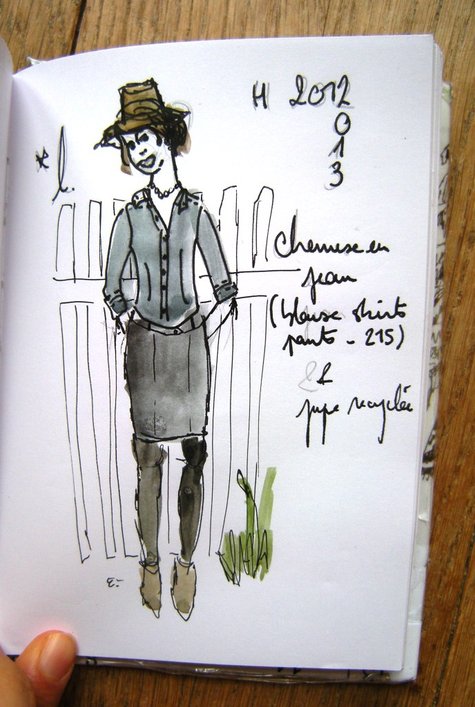 H 2012
0
1
3
* l.
Chemise en
jean
(blouse shirts
pants - 215)
&
jupe recyclée